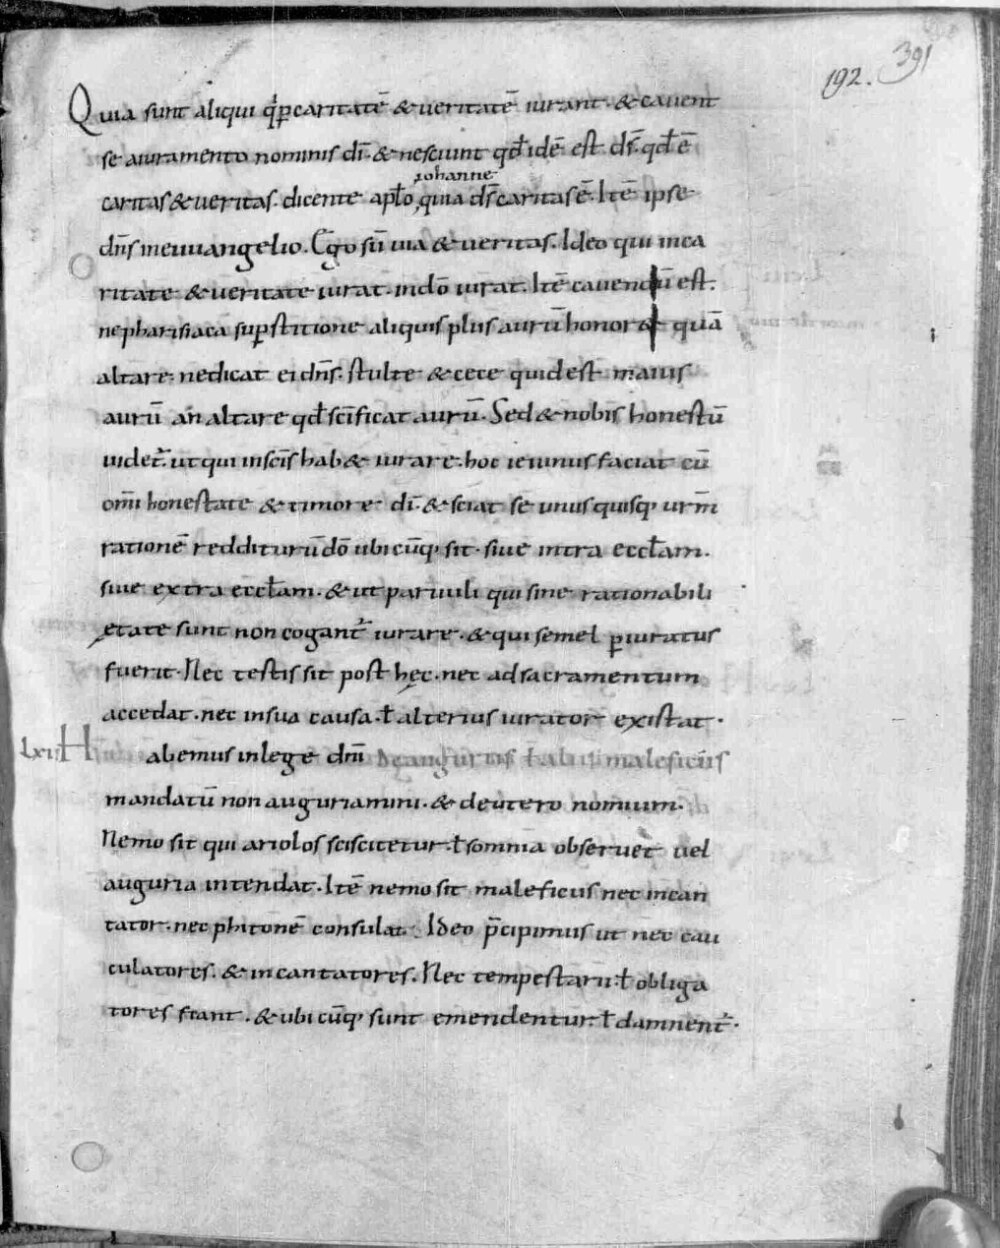 192. 391
Quia sunt aliqui q̇ p̲ caritatē & ueritatē iurant. & cauent
se aiuramento nominis dī. & nesciunt qđ idē est dš. qđ ē
iohanne
caritas & ueritas. dicente apƚo quia dš caritas ē. Itē ipse
dn̄s ineuuangelio. Ego sū uia & ueritas. Ideo qui inca
ritate & ueritate iurat. indō iurat. Itē cauendū est.
ne pharisiaca sup̲stitione aliquis plus aurū honor& quā
altare. ne dicat ei dn̄s. stulte & cece quid est maius
aurū an altare qđ sc̄ificat aurū. Sed & nobis honestū
uidet᷑. ut qui insc̄is hab& iurare. hoc ieiunus faciat cū
om̄i honestate & timore dī. & sciat sē unus quisq; urm̄
rationē redditurū dō ubi cūq; sit. siue intra eccƚam.
siue extra eccƚam. & ut paruuli qui sine rationabili
ętate sunt non cogant᷑ iurare. & qui semel p̲iuratus
fuerit. Nec testis sit post hęc. nec adsacramentum
accedat. nec insua causa. ƚ alterius iurator existat.
Lxii Habemus inlege dn̄i maleficiis
mandatū non auguriamini. & deutero nomium.
Nemo sit qui ariolos sciscitetur. ƚ somnia obseruet uel
auguria intendat. Itē nemo sit maleficus nec incan
tator. nec phitonē consulat. Ideo p̄cipimus ut nec cau
culatores. & incantatores. Nec tempestarii. ƚ obliga
tores fiant. & ubi cūq; sunt emendentur. ƚ damnent᷑.